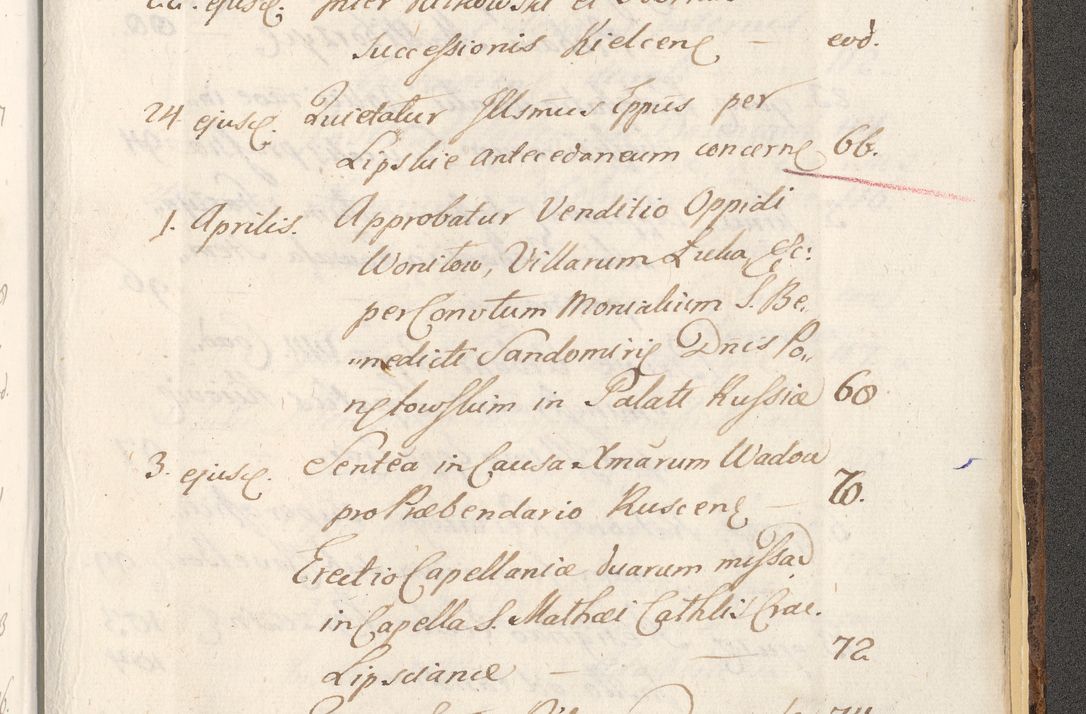 Successionis Kielcens — eod.
24 ejusd. Quietatur Illsmus Eppus per
Lipskie antecedaneum concerne 66.
1. Aprilis. Approbatur Venditio Oppidi
Wonitow, Villarum Luka, &c:
per Convtum Monialium S. Be,,
,,nedicti Sandomirie Dnis Po,,
netowskim in Palatt Russiæ 68
3. ejusd. Sentēa in Causa Xmārum Wadow
pro Præbendario Ruscens — 70.
Erectio Capellaniæ duarum missar
in Capella S. Mathæi Cathlis Crac.
Lipscianæ — 72